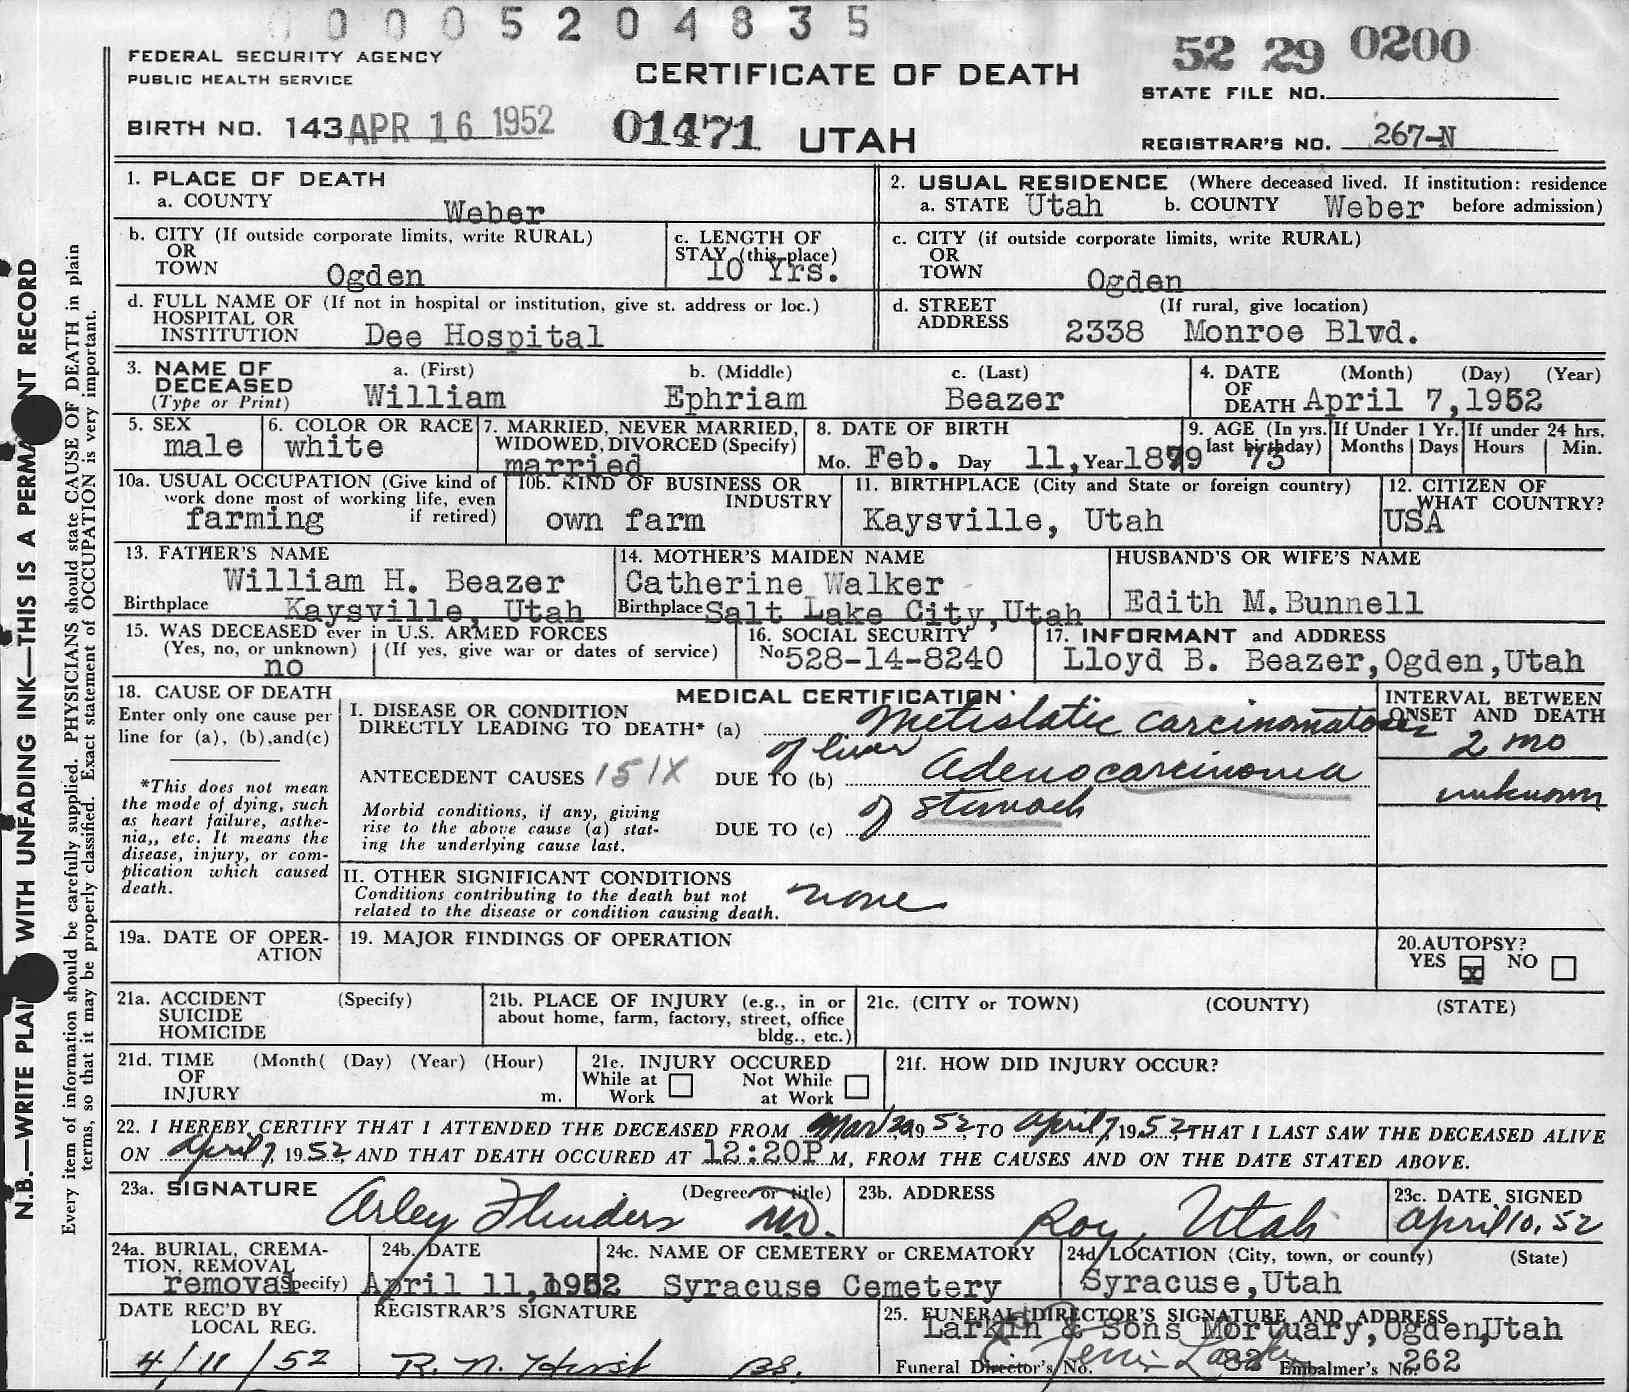 0 0 0 5 2 0 4 8 3 5
FEDERAL SECURITY AGENCY
PUBLIC HEALTH SERVICE
CERTIFICATE OF DEATH
52 29 0200
STATE FILE NO.
BIRTH NO. 143 APR 16 1952 01471 UTAH
REGISTRAR'S NO. 267-N
1. PLACE OF DEATH
a. COUNTY Weber
2. USUAL RESIDENCE (Where deceased lived. If institution: residence
a. STATE Utah b. COUNTY Weber before admission)
b. CITY (If outside corporate limits, write RURAL)
OR
TOWN Ogden
c. LENGTH OF
STAY (this place)
10 Yrs.
c. CITY (if outside corporate limits, write RURAL)
OR
TOWN Ogden
d. FULL NAME OF (If not in hospital or institution, give st. address or loc.)
HOSPITAL OR
INSTITUTION Dee Hospital
d. STREET (If rural, give location)
ADDRESS 2338 Monroe Blvd.
3. NAME OF a. (First) b. (Middle) c. (Last)
DECEASED
(Type or Print) William Ephriam Beazer
4. DATE (Month) (Day) (Year)
OF
DEATH April 7,1952
5. SEX
male
6. COLOR OR RACE
white
7. MARRIED, NEVER MARRIED,
WIDOWED, DIVORCED (Specify)
married
8. DATE OF BIRTH
Mo. Feb. Day 11, Year 1879
9. AGE (In yrs. last birthday) 73
If Under 1 Yr.
Months Days
If under 24 hrs.
Hours Min.
10a. USUAL OCCUPATION (Give kind of
work done most of working life, even
if retired)
farming
10b. KIND OF BUSINESS OR
INDUSTRY
own farm
11. BIRTHPLACE (City and State or foreign country)
Kaysville, Utah
12. CITIZEN OF
WHAT COUNTRY?
USA
13. FATHER'S NAME
William H. Beazer
Birthplace Kaysville, Utah
14. MOTHER'S MAIDEN NAME
Catherine Walker
Birthplace Salt Lake City,Utah
HUSBAND'S OR WIFE'S NAME
Edith M.Bunnell
15. WAS DECEASED ever in U.S. ARMED FORCES
(Yes, no, or unknown) (If yes, give war or dates of service)
no
16. SOCIAL SECURITY
No 528-14-8240
17. INFORMANT and ADDRESS
Lloyd B. Beazer,Ogden,Utah
18. CAUSE OF DEATH
Enter only one cause per
line for (a), (b),and(c)
*This does not mean
the mode of dying, such
as heart failure, asthe-
nia,, etc. It means the
disease, injury, or com-
plication which caused
death.
MEDICAL CERTIFICATION
I. DISEASE OR CONDITION
DIRECTLY LEADING TO DEATH* (a) Metislatic carcinomatosis
of liver
ANTECEDENT CAUSES 151X DUE TO (b) Adenocarcinoma
Morbid conditions, if any, giving
rise to the above cause (a) stat-
ing the underlying cause last.
of stomach
DUE TO (c)
INTERVAL BETWEEN
ONSET AND DEATH
2 mo
unknown
II. OTHER SIGNIFICANT CONDITIONS
Conditions contributing to the death but not
related to the disease or condition causing death.
none
19a. DATE OF OPER-
ATION
19. MAJOR FINDINGS OF OPERATION
20. AUTOPSY?
YES X NO
21a. ACCIDENT (Specify)
SUICIDE
HOMICIDE
21b. PLACE OF INJURY (e.g., in or
about home, farm, factory, street, office
bldg., etc.)
21c. (CITY or TOWN) (COUNTY) (STATE)
21d. TIME (Month( (Day) (Year) (Hour)
OF
INJURY m.
21e. INJURY OCCURED
While at Work Not While at Work
21f. HOW DID INJURY OCCUR?
22. I HEREBY CERTIFY THAT I ATTENDED THE DECEASED FROM Mar 20 1952, TO April 7, 1952, THAT I LAST SAW THE DECEASED ALIVE
ON April 7, 1952, AND THAT DEATH OCCURED AT 12:20P M, FROM THE CAUSES AND ON THE DATE STATED ABOVE.
23a. SIGNATURE (Degree or title)
Arley Flinders M.D.
23b. ADDRESS
Roy, Utah
23c. DATE SIGNED
April 10, 52
24a. BURIAL, CREMA-
TION, REMOVAL
(Specify) removal
24b. DATE
April 11,1952
24c. NAME OF CEMETERY or CREMATORY
Syracuse Cemetery
24d. LOCATION (City, town, or county) (State)
Syracuse,Utah
DATE REC'D BY
LOCAL REG.
4/11/52
REGISTRAR'S SIGNATURE
R. N. Hirst BS.
25. FUNERAL DIRECTOR'S SIGNATURE AND ADDRESS
Larkin & Sons Mortuary,Ogden,Utah
Funeral Director's No. 82 Embalmer's No. 262
N.B.—WRITE PLAI WITH UNFADING INK—THIS IS A PERMA NT RECORD
Every item of information should be carefully supplied. PHYSICIANS should state CAUSE OF DEATH in plain
terms, so that it may be properly classified. Exact statement of OCCUPATION is very important.